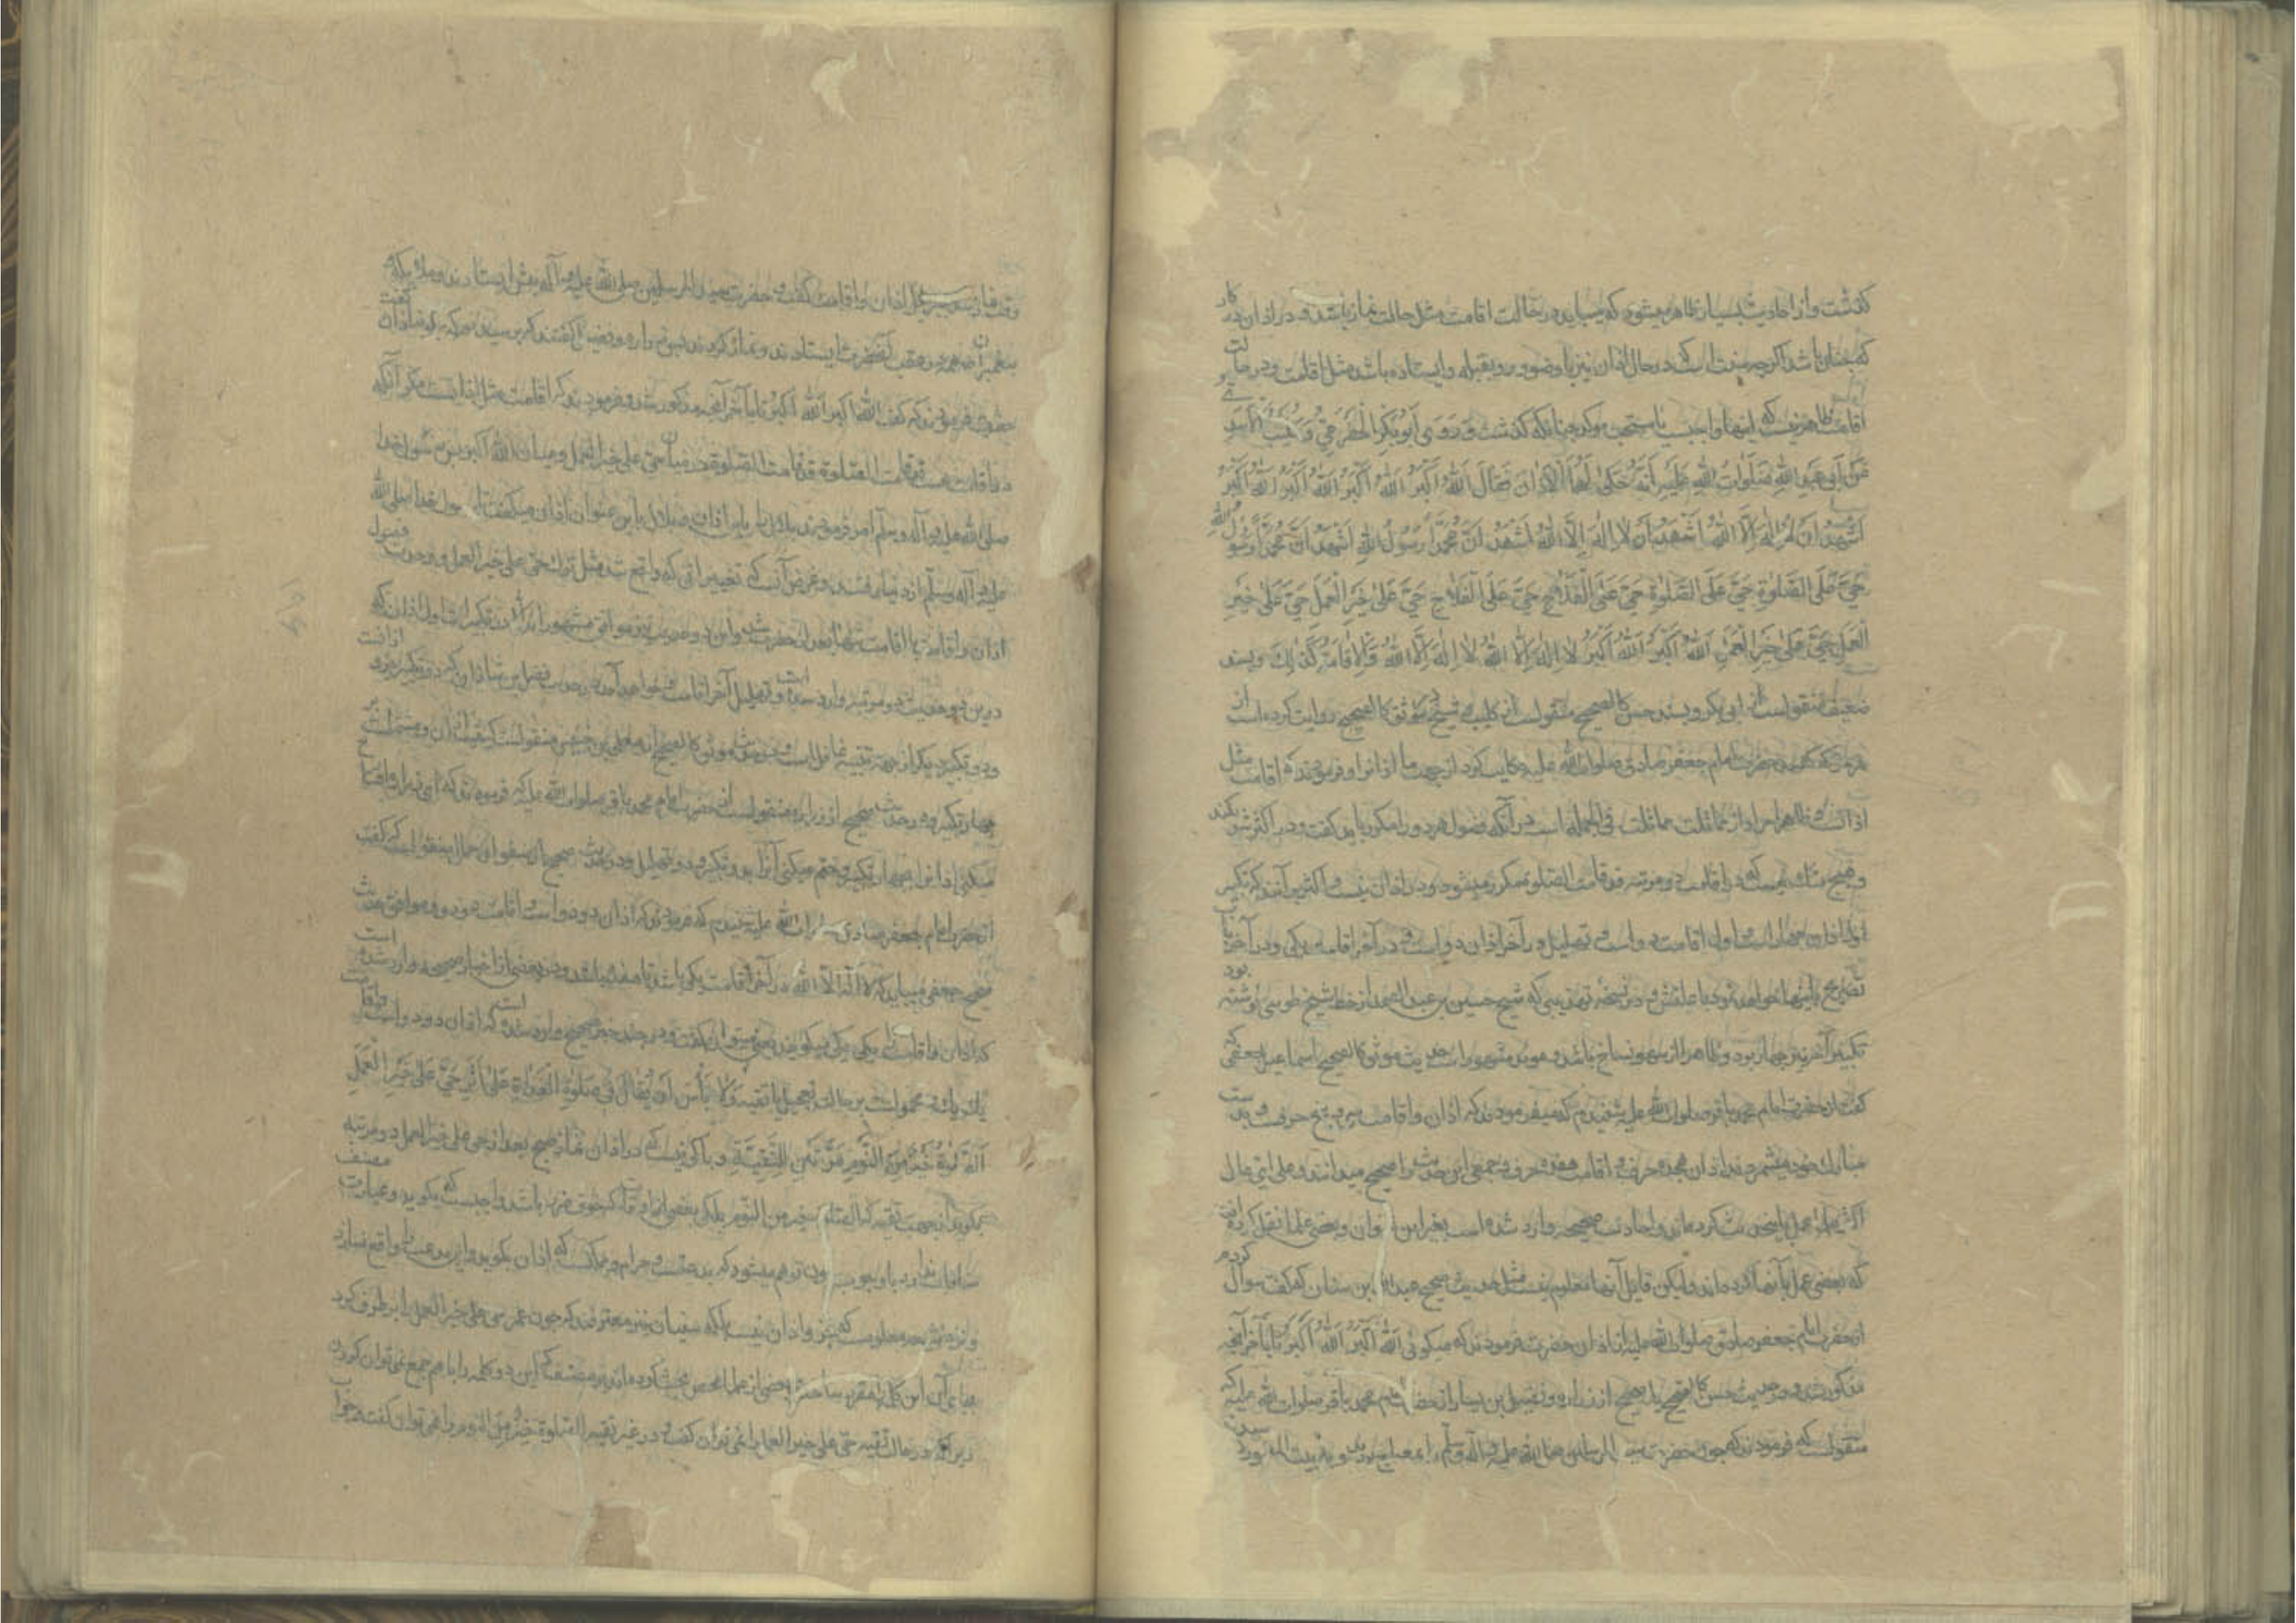 گذشت و از احادیث بسیار ظاهر میشود که میباید در حالت اقامت مثل حالت نماز باشد و در اذان در کار
که چنان باشد اگر چه سنت است که در حال اذان نیز با وضو و رو بقبله و ایستاده باشد مثل اقامت و در حالت
اقامت ظاهر نیست که اینها واجب یا مستحب موکد چنانکه گذشت وَ رَوَی اَبُو بَکْرٍ الْحَضْرَمِیُّ وَ کُلَیْبٌ الْاَسَدِیُّ
عَنْ اَبِی عَبْدِ اللّٰهِ صَلَوَاتُ اللّٰهِ عَلَیْهِ اَنَّهُ حَکیٰ لَهُمَا الْاَذَانَ فَقَالَ اَللّٰهُ اَکْبَرُ اَللّٰهُ اَکْبَرُ اَللّٰهُ اَکْبَرُ اَللّٰهُ اَکْبَرُ
اَشْهَدُ اَنْ لَا اِلٰهَ اِلَّا اللّٰهُ اَشْهَدُ اَنْ لَا اِلٰهَ اِلَّا اللّٰهُ اَشْهَدُ اَنَّ مُحَمَّدًا رَسُولُ اللّٰهِ اَشْهَدُ اَنَّ مُحَمَّدًا رَسُولُ اللّٰهِ
حَیَّ عَلَی الصَّلٰوةِ حَیَّ عَلَی الصَّلٰوةِ حَیَّ عَلَی الْفَلَاحِ حَیَّ عَلَی الْفَلَاحِ حَیَّ عَلیٰ خَیْرِ الْعَمَلِ حَیَّ عَلیٰ خَیْرِ
الْعَمَلِ اَللّٰهُ اَکْبَرُ اَللّٰهُ اَکْبَرُ لَا اِلٰهَ اِلَّا اللّٰهُ لَا اِلٰهَ اِلَّا اللّٰهُ وَ الْاِقَامَةُ کَذٰلِکَ و بسند
ضعیف منقولست از ابی بکر و بسند حسن کالصحیح منقولست از کلیب و شیخ موثق کالصحیح روایت کرده است از
هر دو که گفتند حضرت امام جعفر صادق صلوات الله علیه حکایت کرد از جهت ما اذانرا و فرمودند که اقامت مثل
اذانست و ظاهرا مراد از مماثلت مماثلت فی الجمله است در آنکه فصول هر دو را مکرر باید گفت و در اکثر
و هیچ شک نیست که در اقامت دو مرتبه قد قامت الصلوة مکرر میشود و در اذان نیست و اکثر بر آنند که تکبیر
اول اذان چهار است و اول اقامت دو است و تهلیل در آخر اذان دو است و در آخر اقامت یکی و در آخر باب
تصریح باینها خواهد بود و در نسخه تهذیبی که شیخ حسین بن عبد الصمد از خط شیخ طوسی نوشته بود
تکبیر آخر نیز چهار بود و ظاهرا از سهو نساخ باشد و موید مشهور است حدیث موثق کالصحیح اسماعیل جعفی که
گفت از حضرت امام محمد باقر صلوات الله علیه شنیدم که میفرمودند که اذان و اقامت سی و پنج حرفست و بدست
مبارک خود میشمردند اذان هجده حرف و اقامت هفده حرف و جمعی این حدیث را صحیح میدانند و علی ای حال
اکثر علما عمل باین حدیث کرده‌اند و احادیث صحیحه وارد شده است بغیر این عنوان و بعضی علما نقل کرده‌اند
که بعضی عمل بآنها کرده‌اند ولیکن قایل آنها معلوم نیست مثل حدیث صحیح عبد الله بن سنان که گفت سوال کردم
از حضرت امام جعفر صادق صلوات الله علیه از اذان حضرت فرمودند که میگوئی اَللّٰهُ اَکْبَرُ اَللّٰهُ اَکْبَرُ تا بآخر آنچه
مذکور شد و در حدیث حسن کالصحیح یا صحیح از زراره و فضیل بن یسار از حضرت امام محمد باقر صلوات الله علیه
منقولست که فرمودند که چون حضرت سید المرسلین صلی الله علیه و آله و سلم را بمعراج بردند و به بیت المعمور رسیدند
وقت نماز شد جبرئیل اذان و اقامت گفت و حضرت سید المرسلین صلی الله علیه و آله پیش ایستادند و ملائکه و
پیغمبران همه در عقب آنحضرت ایستادند و نماز کردند پس زراره و فضیل گفتند که پرسیدیم که چگونه اذان گفت
حضرت فرمودند که گفت اَللّٰهُ اَکْبَرُ اَللّٰهُ اَکْبَرُ تا بآخر آنچه مذکور شد و فرمودند که اقامت مثل اذانست مگر آنکه
در اقامت هست قد قامت الصلوة قد قامت الصلوة در میان حی علی خیر العمل و میان الله اکبر پس رسول خدا
صلی الله علیه و آله و سلم امر فرمودند بلال را باین اذان و بلال باین عنوان اذان میگفت تا رسول خدا صلی الله
علیه و آله و سلم از دنیا رفتند و غرض آنست که تغییراتی که واقع شد مثل ترک حی علی خیر العمل و وحدت فصول
اذان و اقامت یا اقامت تنها بعد از حضرت شد و این دو حدیث نیز موافق مشهورند الا در تکبیرات اول اذان که
درین دو حدیث دو مرتبه وارد شده است و تهلیل آخر اقامت و خواهد آمد در حدیث فضل بن شاذان که دو تکبیر جزو اذانست
و دو تکبیر دیگر از جهت تنبیه غافل است و در حدیث موثق کالصحیح از معلی بن خنیس منقولست کیفیت اذان و مشتمل است بر
چهار تکبیر و در حدیث صحیح از زراره منقولست از حضرت امام محمد باقر صلوات الله علیه که فرمودند که ای زراره افتتاح
میکنی اذانرا بچهار تکبیر و ختم میکنی آنرا بدو تکبیر و دو تهلیل و در حدیث صحیح از صفوان جمال منقولست که گفت
از حضرت امام جعفر صادق صلوات الله علیه شنیدم که فرمودند که اذان دو دو است و اقامت دو دو و موافق حدیث
صحیح جعفی میباید که لا اله الا الله در آخر اقامت یکی باشد تا هفده باشد و در بعضی از اخبار صحیحه وارد شده است
که اذان و اقامت یکی یکی میگویند یعنی میتوان گفت و در چند خبر صحیح وارد شده است که اذان دو دو است و اقامت
یک یک و محمولست بر حالت تعجیل یا تقیه وَلَا بَأْسَ اَنْ یُقَالَ فِی صَلٰوةِ الْغَدَاةِ عَلیٰ اَثَرِ حَیَّ عَلیٰ خَیْرِ الْعَمَلِ
اَلصَّلٰوةُ خَیْرٌ مِنَ النَّوْمِ مَرَّتَیْنِ لِلتَّقِیَّةِ و باکی نیست که در اذان نماز صبح بعد از حی علی خیر العمل دو مرتبه
بگویند از جهت تقیه که الصلوة خیر من النوم بلکه بعضی از اوقات که خوف ضرر باشد واجبست که بگوید و عبارت مصنف
منافات ندارد با وجوب چون توهم میشود که بدعتست و حرام و ممکنست که اذان بگوید و این بدعت را واقع نسازد
و نزد شیعه معلومست که جزو اذان نیست بلکه سنیان نیز معترفند که چون عمر حی علی خیر العمل را بر طرف کرد
بجای آن این کلمه را مقرر ساخت و بعضی از علما محض بحث کرده‌اند بر مصنف که این دو کلمه را با هم جمع نمیتوان کردن
زیرا که در حال تقیه حی علی خیر العمل را نمی توان گفت و در غیر تقیه الصلوة خیر من النوم را نمی توان گفت و جواب